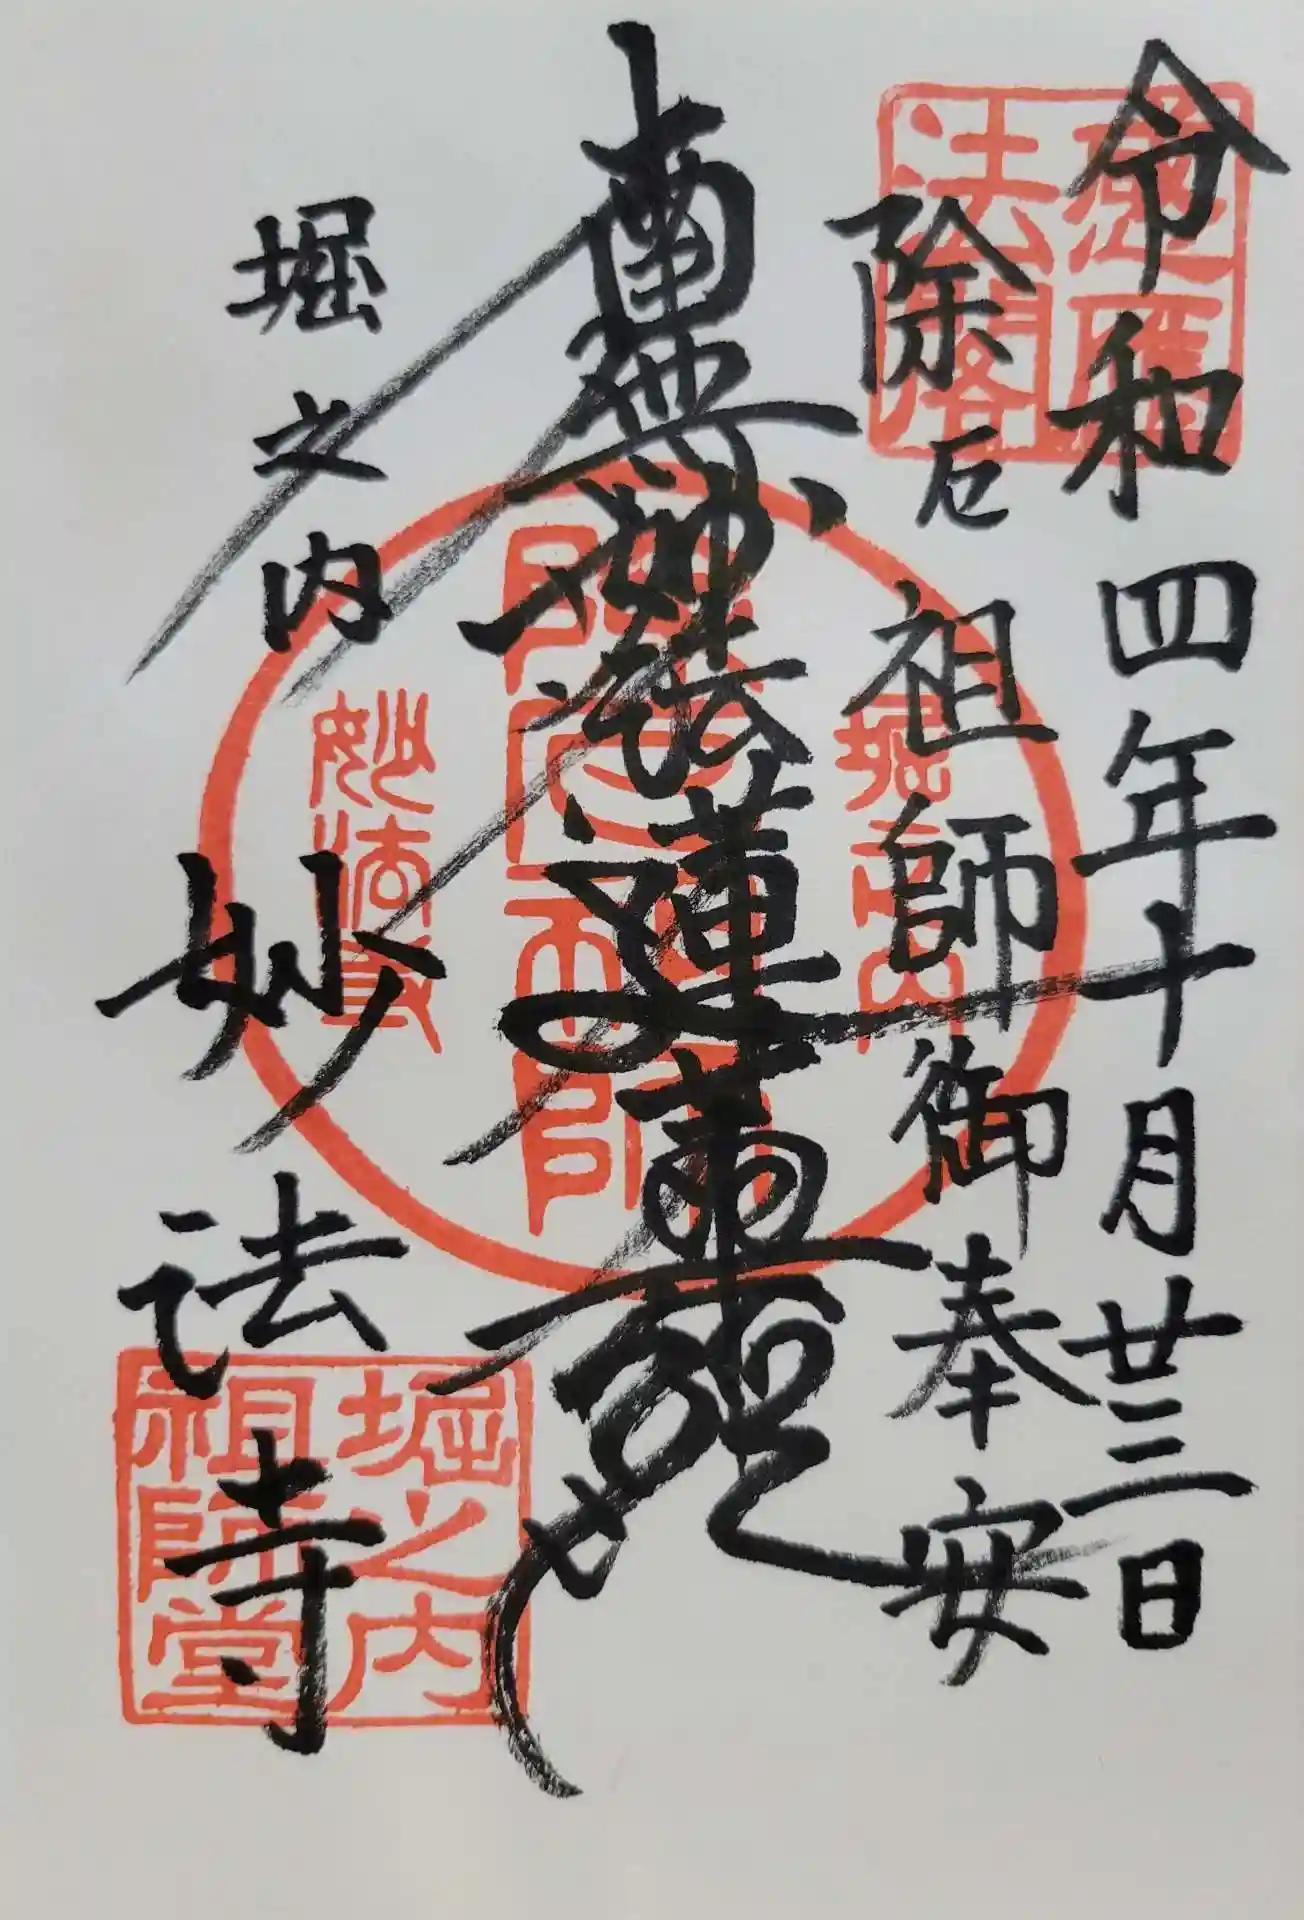 令和四年十月廿三日
除厄祖師御奉安
南無妙法蓮華經
堀之内
妙法寺
堀之内
妙法寺
堀之内
祖師堂